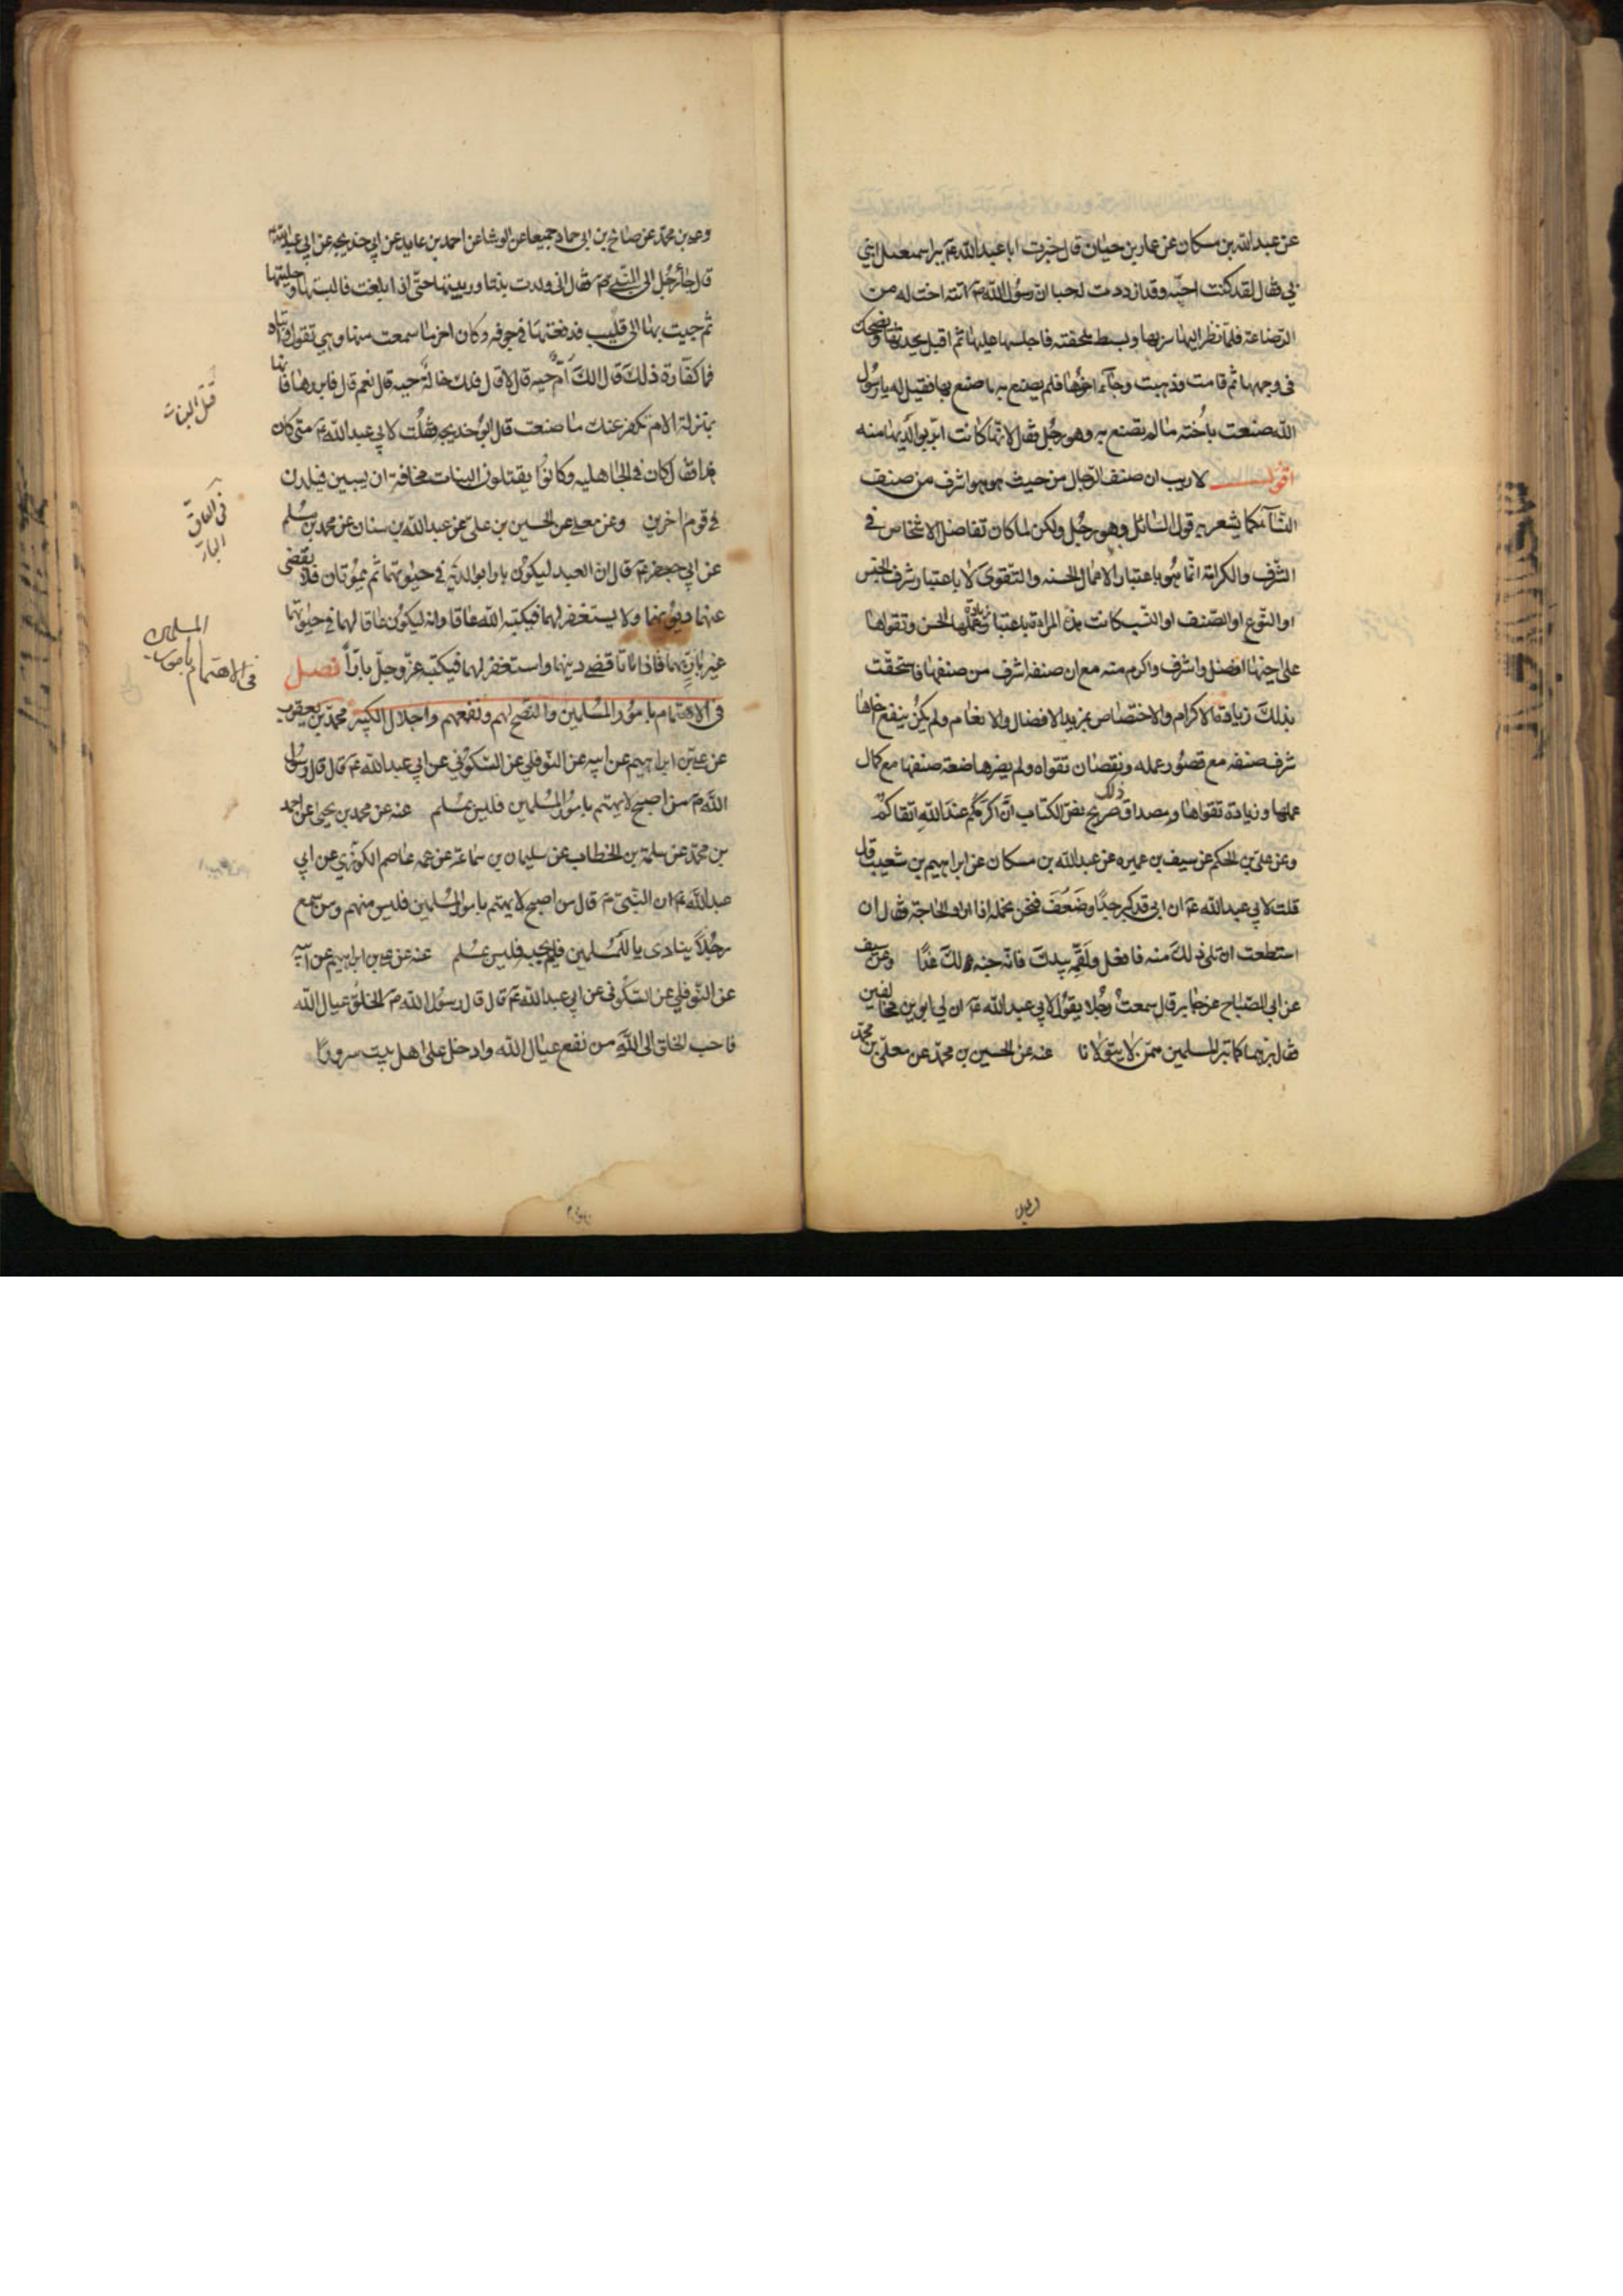 عن عبدالله بن مسكان عن عمار بن حيان قال خبرت اباعبدالله ع ببر اسمعيل ابني
بي فقال لقد كنت احبه وقد ازددت له حبا ان رسول الله ص اتته اخت له من
الرضاعة فلما نظر اليها سر بها وبسط ملحفته لها فاجلسها عليها ثم اقبل يحدثها ويضحك
فى وجهها ثم قامت وذهبت وجآء اخوها فلم يصنع به ما صنع بها فقيل له يا رسول
الله صنعت باخته ما لم تصنع به وهو رجل فقال لانها كانت ابر بوالديها منه
اقول لا ريب ان صنف الرجال من حيث هو هو اشرف من صنف
النسآء كما يشعر به قول السائل وهو رجل ولكن لما كان تفاضل الاشخاص فى
الشرف والكرامة انما هو باعتبار الاعمال الحسنه والتقوى لا باعتبار شرف الجنس
او النوع او الصنف او النسب كانت هذه المراة باعتبار زيادة عملها الحسن وتقواها
على اخيها افضل واشرف واكرم منه مع ان صنفه اشرف من صنفها فاستحقت
بذلك زيادة الاكرام والاختصاص بمزيد الافضال والانعام ولم يكن ينفع اخاها
شرف صنفه مع قصور عمله ونقصان تقواه ولم يضرها ضعة صنفها مع كمال
عملها وزيادة تقواها ومصداق ذلك صريح نص الكتاب ان اكرمكم عند الله اتقاكم
وعن على بن الحكم عن سيف بن عميره عن عبدالله بن مسكان عن ابراهيم بن شعيب قال
قلت لابي عبدالله ع ان ابى قد كبر جدا وضعف فنحن نحمله اذا اراد الحاجة فقال ان
استطعت ان تلى ذلك منه فافعل ولقمه بيدك فانه جنة لك غدا وعن سيف
عن ابى الصباح عن جابر قال سمعت رجلا يقول لابي عبدالله ع ان لي ابوين مخالفين
فقال برهما كما تبر المسلمين ممن لا يتولانا عنه عن الحسين بن محمد عن معلى بن محمد
وعلى بن محمد عن صالح بن ابى حماد جميعا عن الوشا عن احمد بن عايد عن ابي خديجه عن ابي عبدالله ع
قال جاء رجل الى النبى ص فقال انى ولدت بنتا وربيتها حتى اذا بلغت فالبستها وحليتها
ثم جيت بها الى قليب فدفعتها فى جوفه وكان اخر ما سمعت منها وهى تقول يا ابتاه
فما كفارة ذلك قال الك ام حيه قال لا قال فلك خالة حيه قال نعم قال فابررها فانها
بمنزلة الام تكفر عنك ما صنعت قال ابو خديجه فقلت لابي عبدالله ع متى كان
هذا فقال كان فى الجاهليه وكانوا يقتلون البنات مخافة ان يسبين فيلدن
فى قوم اخرين وعن معلى عن الحسين بن على عن عبدالله بن سنان عن محمد بن مسلم
عن ابى جعفر ع قال ان العبد ليكون بارا بوالديه فى حيوتهما ثم يموتان فلا يقضى
عنهما ديونهما ولا يستغفر لهما فيكتبه الله عاقا وانه ليكون عاقا لهما فى حيوتهما
غير بار بهما فاذا ماتا قضى دينهما واستغفر لهما فيكتبه عز وجل بارا فصل
فى الاهتمام بامور المسلمين والنصح لهم ونفعهم واجلال الكبير محمد بن يعقوب
عن على بن ابراهيم عن ابيه عن النوفلي عن السكونى عن ابى عبدالله ع قال قال رسول
الله ص من اصبح لا يهتم بامور المسلمين فليس بمسلم عنه عن محمد بن يحيى عن احمد
بن محمد عن سلمة بن الخطاب عن سليمان بن سماعة عن عمه عاصم الكوزي عن ابى
عبدالله ع ان النبى ص قال من اصبح لا يهتم بامور المسلمين فليس منهم ومن سمع
رجلا ينادى يا للمسلمين فلم يجبه فليس بمسلم عنه عن على بن ابراهيم عن ابيه
عن النوفلي عن السكونى عن ابى عبدالله ع قال قال رسول الله ص الخلق عيال الله
فاحب الخلق الى الله من نفع عيال الله وادخل على اهل بيت سرورا
قتل البنات
فى العاق
البار
فى الاهتمام بامور
المسلمين